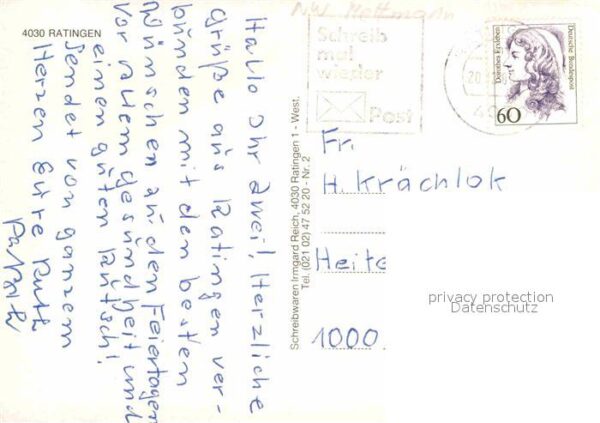 4030 RATINGEN
Hallo Ihr zwei! Herzliche
Grüße aus Ratingen ver-
bunden mit den besten
Wünschen zu den Feiertagen
vor allem gesundheit und
einen guten Rutsch!
Sendet von ganzem
Herzen Eure Ruth
Schreibwaren Irmgard Reich, 4030 Ratingen 1 - West.
Tel. (021 02) 47 52 20 - Nr. 2
NW Mettmann
Schreib
mal
wieder
Post
Dorothea Erxleben
Deutsche Bundespost
60
Fr.
H. Krächlok
Heite
1000
privacy protection
Datenschutz